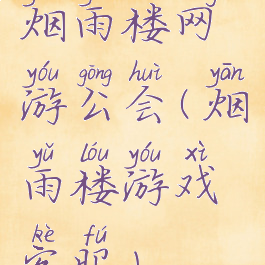 烟雨楼网
yóu gōng huì yān
游公会(烟
yǔ lóu yóu xì
雨楼游戏
kè fú
客服)